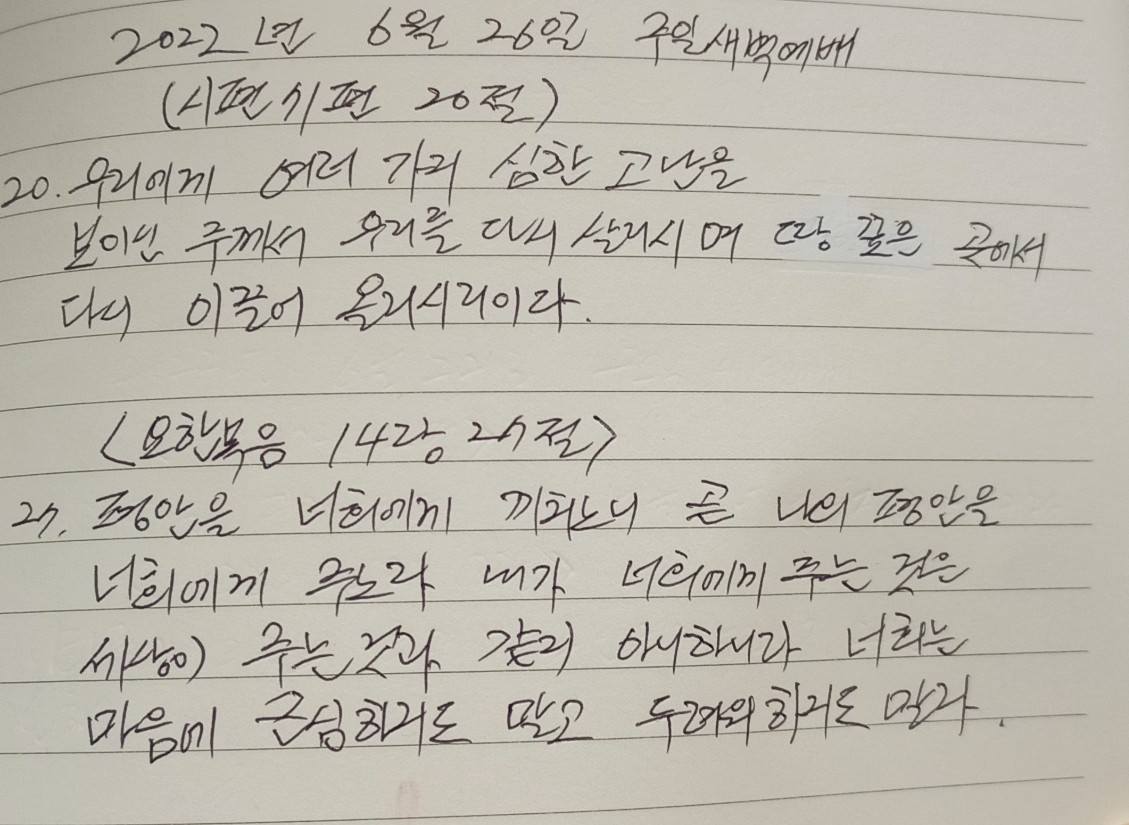 2022년 6월 26일 주일새벽예배
(시편 71편 20절)
20. 우리에게 여러 가지 심한 고난을
보이신 주께서 우리를 다시 살리시며 땅 깊은 곳에서
다시 이끌어 올리시리이다.
<요한복음 14장 27절>
27. 평안을 너희에게 끼치노니 곧 나의 평안을
너희에게 주노라 내가 너희에게 주는 것은
세상이 주는 것과 같지 아니하니라 너희는
마음에 근심하지도 말고 두려워하지도 말라.